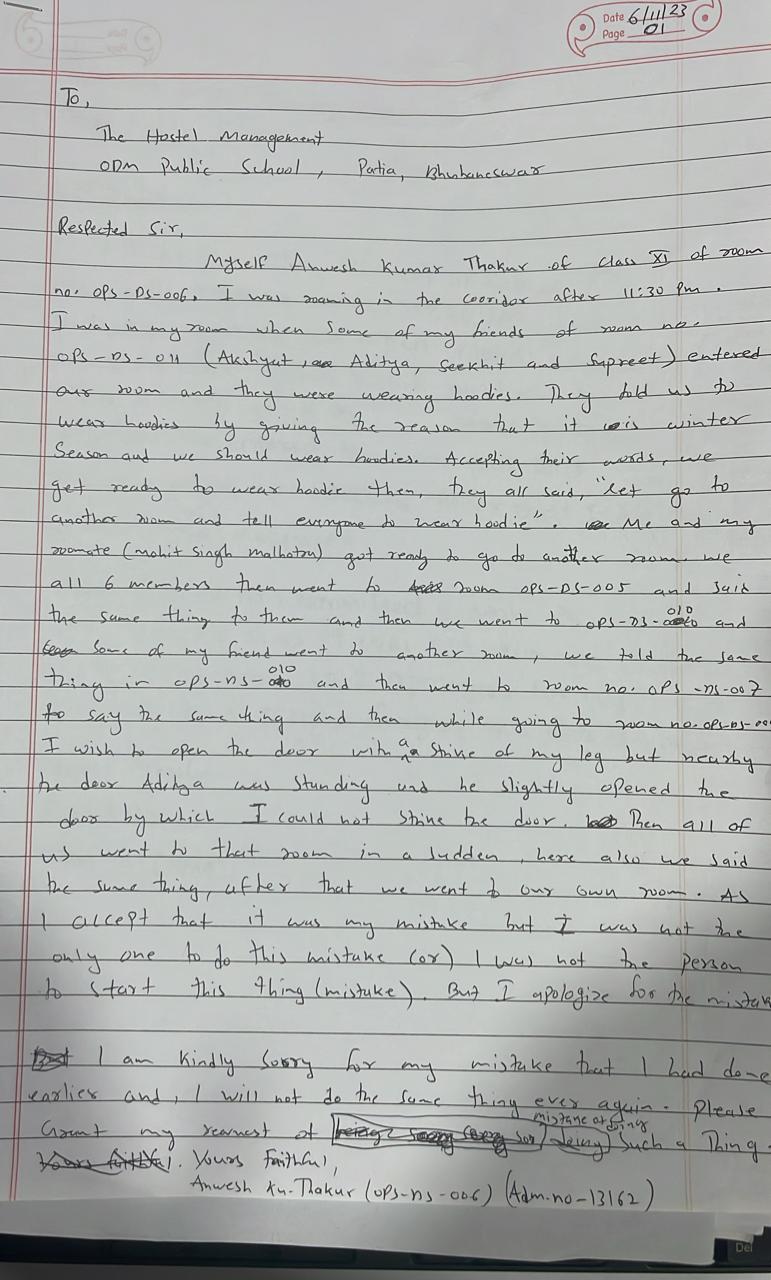 Date 6/11/23
Page 01
To,
The Hostel Management
ODM Public School, Patia, Bhubaneswar
Respected Sir,
Myself Anwesh Kumar Thakur of class XI of room
no. OPS-DS-006. I was roaming in the cooridor after 11:30 Pm.
I was in my room when some of my friends of room no.
OPS-DS-011 (Akshyat, Aditya, Seekhit and Supreet) entered
our room and they were wearing hoodies. They told us to
wear hoodies by giving the reason that it is winter
Season and we should wear hoodies. Accepting their words, we
get ready to wear hoodie then, they all said, "let go to
another room and tell everyone to wear hoodie". Me and my
roomate (Mohit Singh Malhotra) got ready to go to another room. we
all 6 members then went to room OPS-DS-005 and said
the same thing to them and then we went to OPS-DS-010 and
some of my friend went to another room, we told the same
thing in OPS-DS-010 and then went to room no. OPS-DS-007
to say the same thing and then while going to room no. OPS-DS-00
I wish to open the door with a strike of my leg but nearby
he door Aditya was standing and he slightly opened the
door by which I could not strike the door. Then all of
us went to that room in a sudden, here also we said
the same thing, after that we went to our own room. As
I accept that it was my mistake but I was not the
only one to do this mistake (or) I was not the person
to start this thing (mistake). But I apologize for the mistak
I am kindly sorry for my mistake that I had done
earlier and, I will not do the same thing ever again. Please
Grant my request of mistake of doing such a Thing.
Yours faithful,
Anwesh Ku. Thakur (OPS-DS-006) (Adm.no-13162)
Del